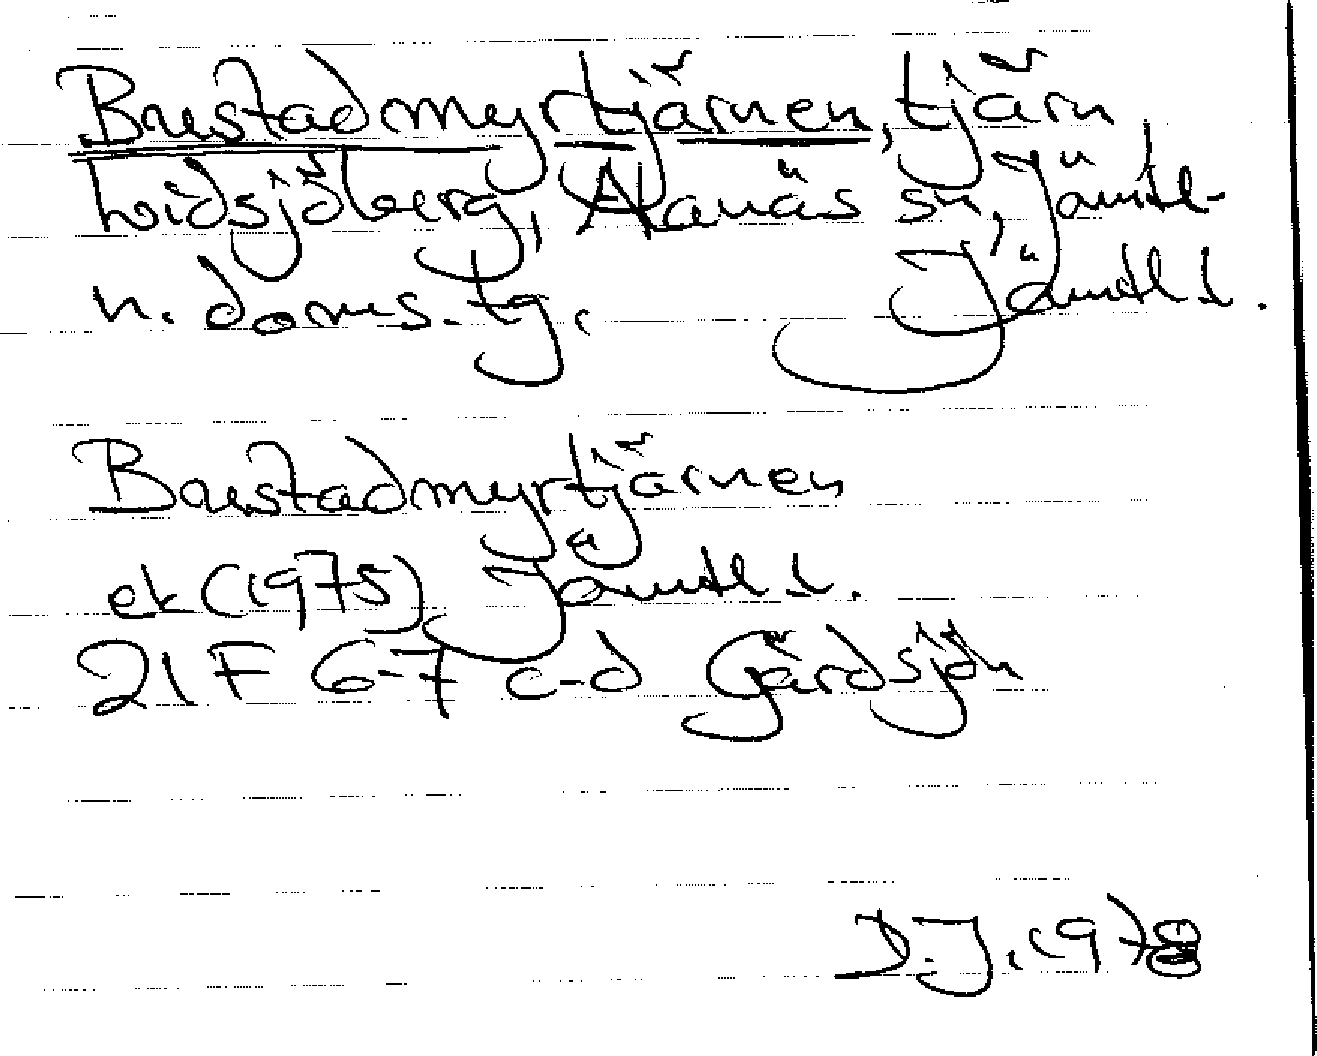 Bustadmyrtjärnen, tjärn
Lidsjöberg, Alanäs sn, Jämtl-
n. doms. tg. Jämtl l.
Bustadmyrtjärnen
ek (1975) Jämtl l.
21 F 6-7 c-d Gärdsjön
D.J. 1978